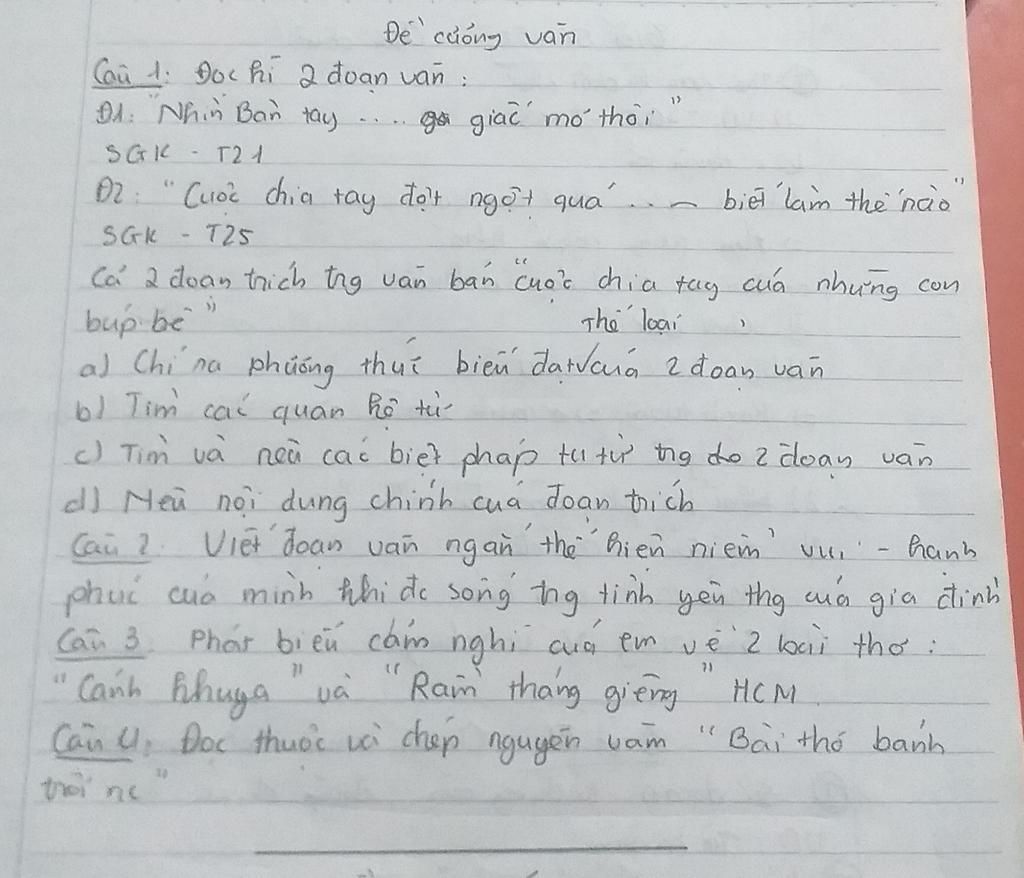 Đề cương văn
Câu 1: Đọc kĩ 2 đoạn văn :
Đ1: "Nhìn Bàn tay .... giấc mơ thôi"
SGK - T21
Đ2: "Cuộc chia tay đột ngột quá ... biết làm thế nào"
SGK - T25
Cả 2 đoạn trích trg văn bản "cuộc chia tay của những con
búp bê" Thể loại
a) Chỉ ra phương thức biểu đạt√của 2 đoạn văn
b) Tìm các quan hệ từ
c) Tìm và nêu các biện pháp tu từ trg 2 đoạn văn
d) Nêu nội dung chính của đoạn trích
Câu 2. Viết đoạn văn ngắn thể hiện niềm vui - hạnh
phúc của mình khi đc sống trg tình yêu thg của gia đình
Câu 3. Phát biểu cảm nghĩ của em về 2 bài thơ :
"Cảnh khuya" và "Rằm tháng giêng" HCM
Câu 4: Đọc thuộc và chép nguyên văm "Bài thơ bánh
trôi nc"